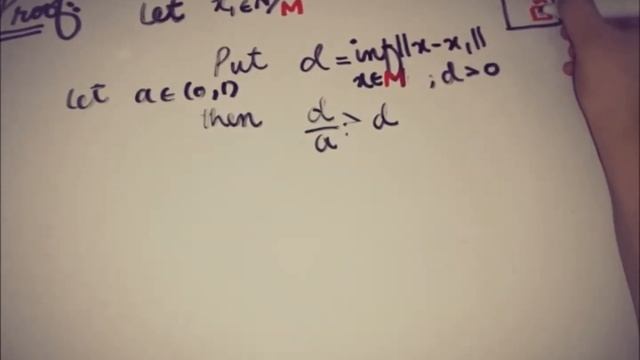 Proof: Let x₁ ∈ N/M
Put d = inf ||x-x₁||
x∈M ; d>0
Let a ∈ (0,1)
then d/a > d